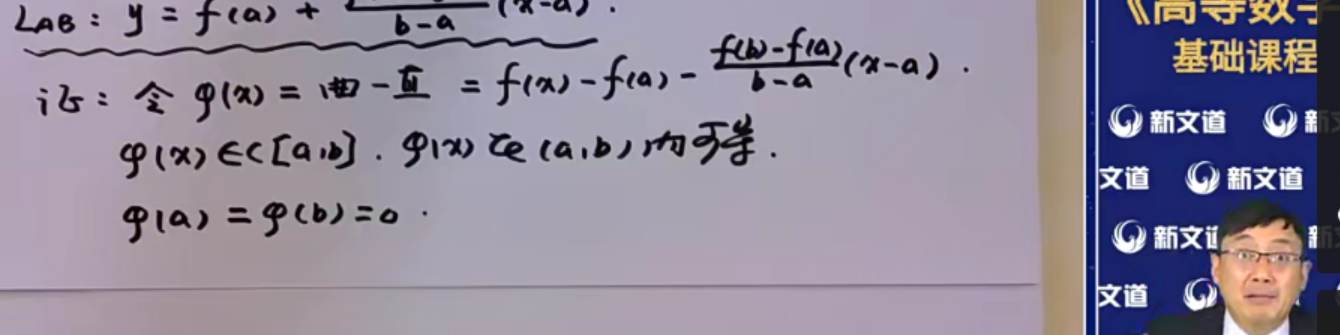 LAB: y = f(a) + (x-a).
b-a
证: 令 φ(x) = 曲-直 = f(x)-f(a)- f(b)-f(a)/b-a (x-a).
φ(x)∈C[a,b]. φ(x)在(a,b)内可导.
φ(a)=φ(b)=0.
《高等数学
基础课程
新文道 新
文道 新文道
新文道 新
文道